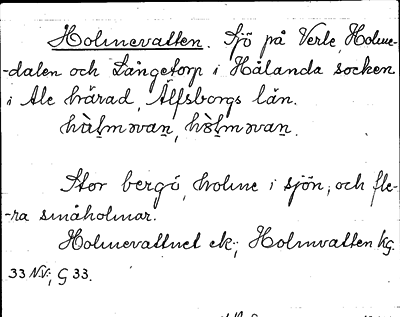 Holmevatten. Sjö på Verle, Holme-
-dalen och Långetorp i Hålanda socken
i Ale härad, Älfsborgs län.
Stor bergö, holme i sjön, och fle-
-ra småholmar.
Holmevattnet ek.; Holmvatten kg.
33 N.V.; G 33.